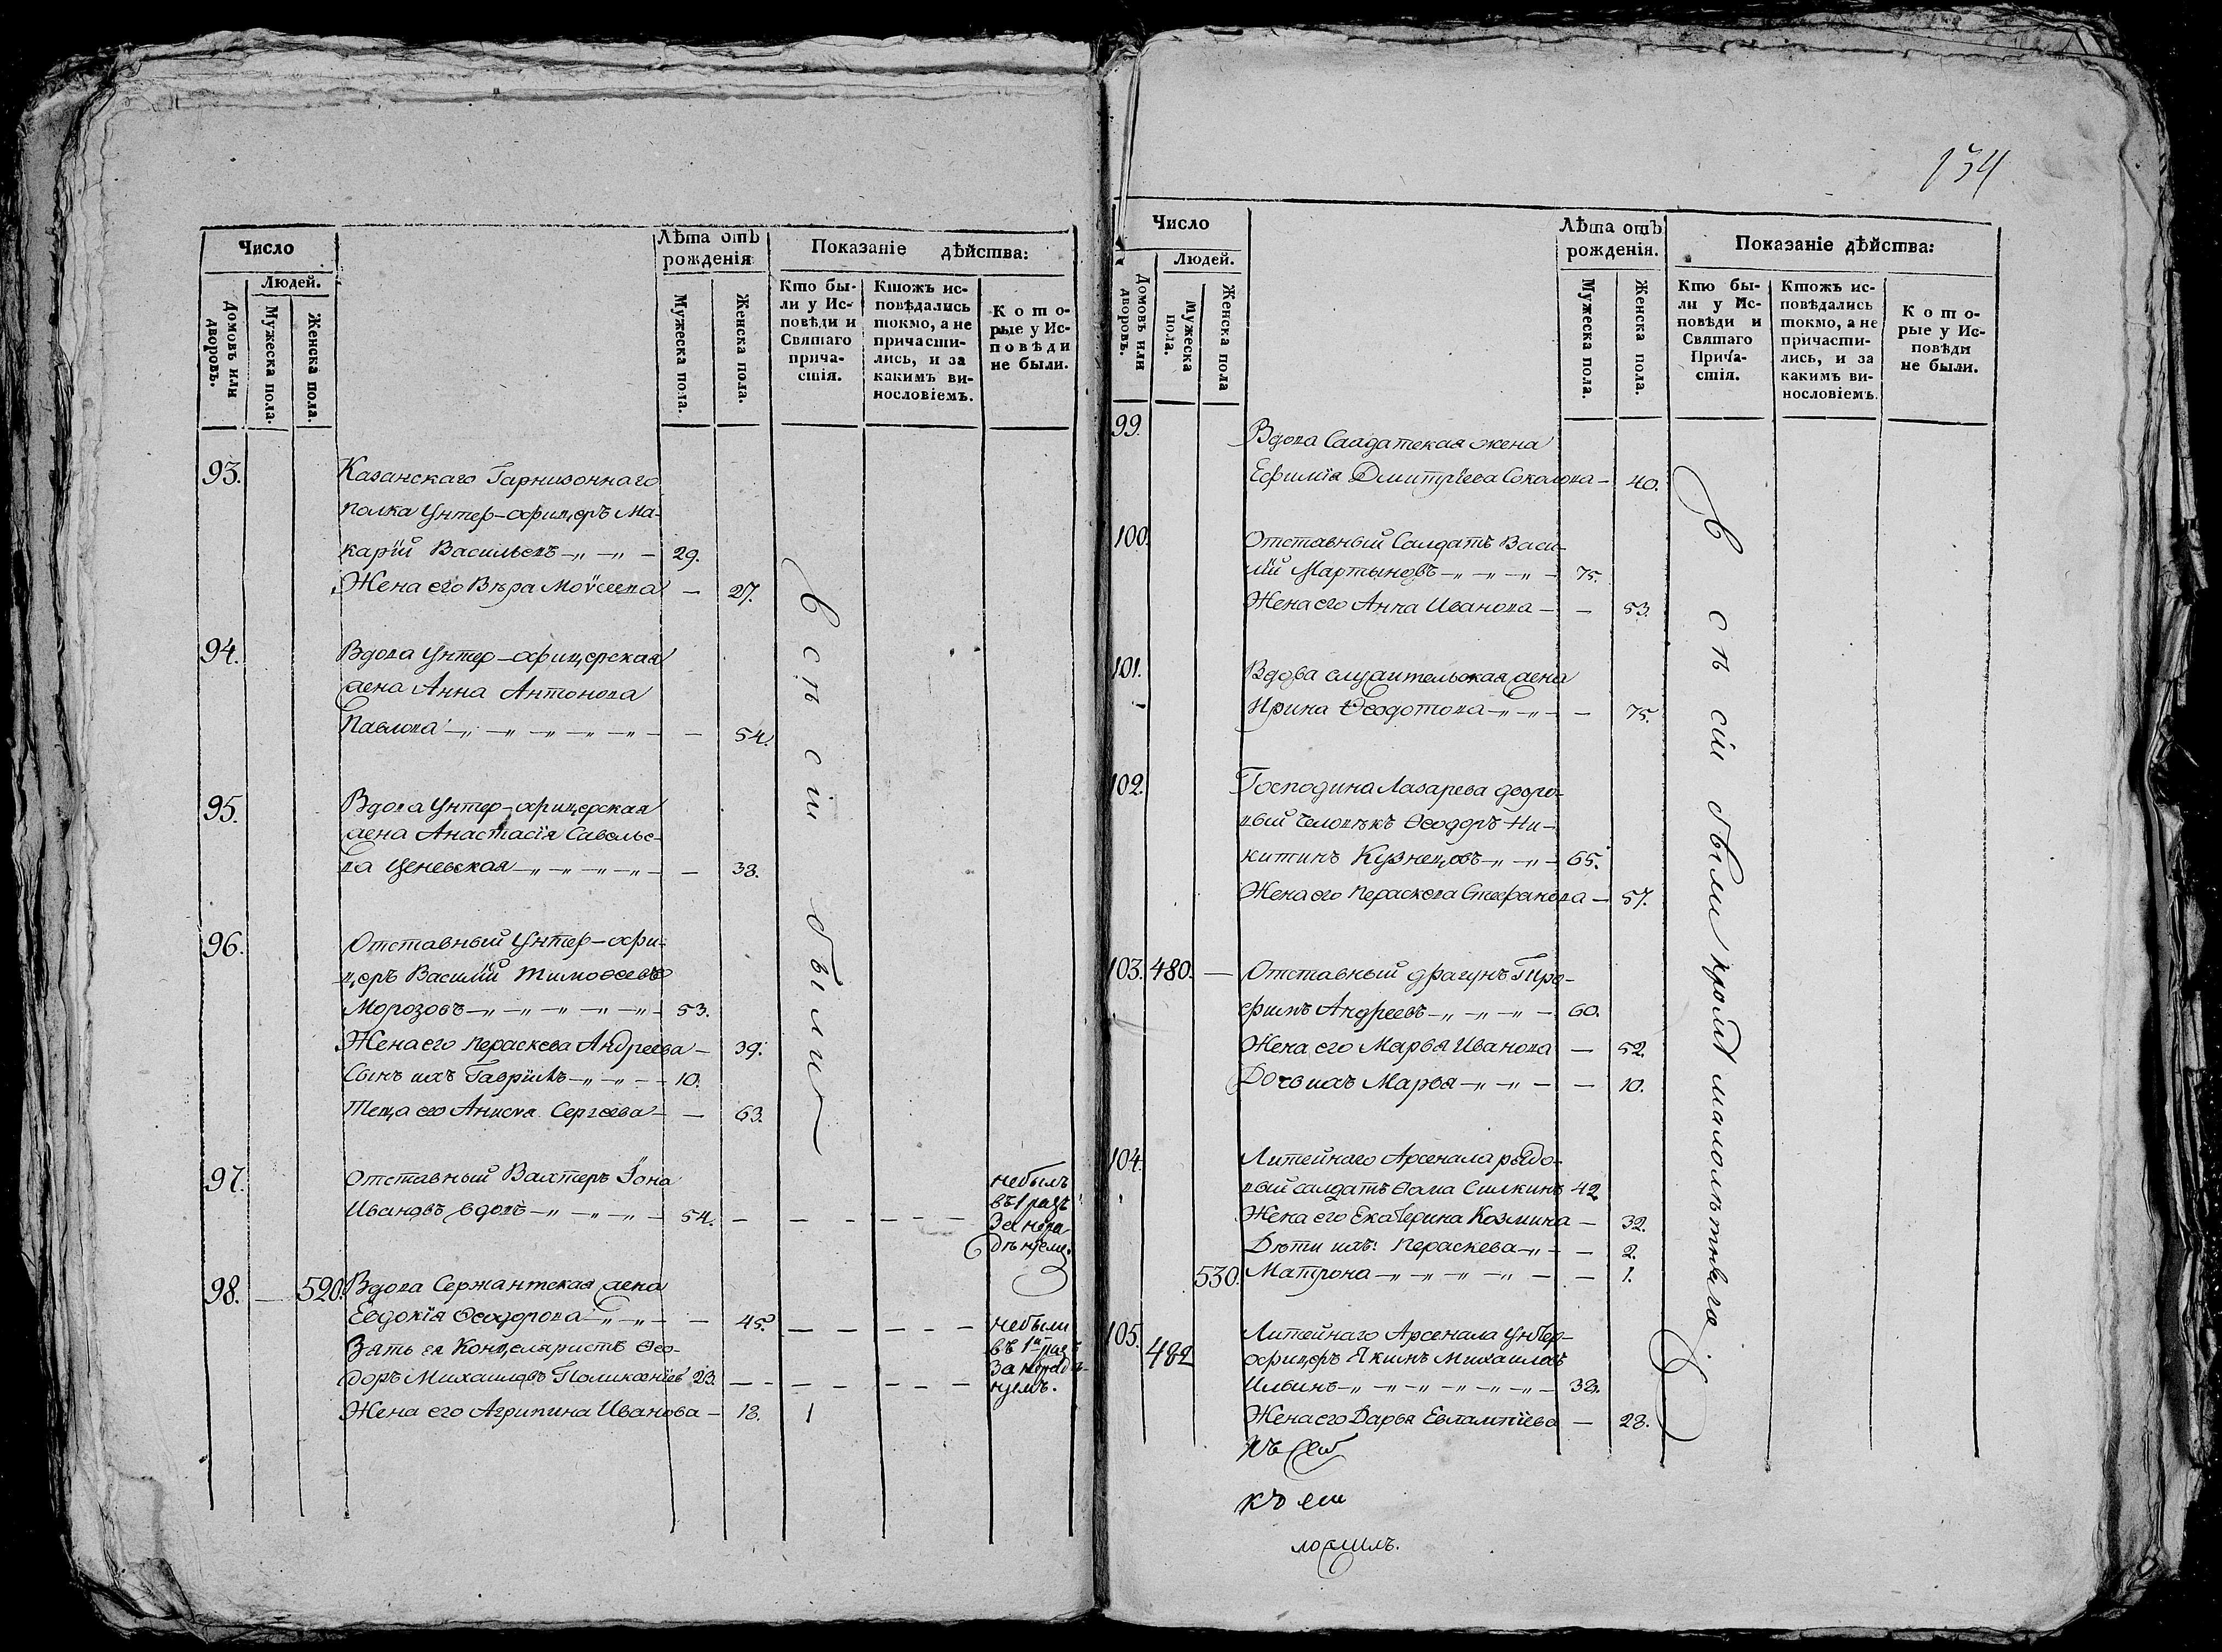 Число
Людей.
Домовъ или дворовъ.
Мужеска пола.
Женска пола.
Лѣта отъ
рожденія
Мужеска пола.
Женска пола.
Показаніе дѣйства:
Кто бы-
ли у Ис-
повѣди и
Святаго
прича-
стія.
Ктожъ ис-
повѣдались
токмо, а не
причасти-
лись, и за
какимъ ви-
нословіемъ.
Кото-
рые у Ис-
повѣди
не были.
93. Казанскаго Гарнизоннаго
полка Унтер-офицеръ Ма-
карій Васильевъ 29.
Жена его Вѣра Моѵсеева — 27.
94. Вдова Унтер-офицерская
жена Анна Антонова
Павлова — 54.
95. Вдова Унтер-офицерская
жена Анастасія Савелье-
ва Ценевская — 38.
96. Отставный Унтер-офи-
церъ Василій Тимофеевъ
Морозовъ 53.
Жена его Параскева Андреева — 39.
Сынъ ихъ Гавріилъ 10.
Теща его Сергеева — 63.
97. Отставный Вахтеръ Іона
Ивановъ вдовъ 54.
небылъ
въ 1 разъ
За нера-
98. — 520. Вдова Сержантская жена
Евдокія Ѳеодорова — 45.
Зять ея Концеляристъ Ѳео-
доръ Михаиловъ 23.
Жена его Агрипина Иванова — 18.
небыли
въ 1й раз
всѣ сіи были
134
Число
Людей.
Домовъ или дворовъ.
Мужеска пола.
Женска пола
Лѣта отъ
рожденія.
Мужеска пола.
Женска пола.
Показаніе дѣйства:
Кто бы-
ли у Ис-
повѣди и
Святаго
Прича-
стія.
Ктожъ ис-
повѣдались
токмо, а не
причасти-
лись, и за
какимъ ви-
нословіемъ.
Кото-
рые у Ис-
повѣди
не были.
99. Вдова Салдатская жена
Ефимія Дмитріева Соколова — 40.
100. Отставный Салдатъ Васи-
лій Мартыновъ 75.
Жена его Анна Иванова — 53.
101. Вдова служительская жена
Ирина Ѳеодотова — 75.
102. Господина Лазарева дворо-
вый человѣкъ Ѳеодоръ Ни-
китинъ Кузнецовъ 65.
Жена его Параскева Стефанова — 57.
103. 480. — Отставный драгунъ Тро-
фимъ Андреевъ 60.
Жена его Марья Иванова — 52.
Дочь ихъ Марья — 10.
104. Литейнаго Арсенала рядо-
вый салдатъ Ѳома Силкинъ 42
Жена его Екатерина Козмина — 32.
Дѣти ихъ: Параскева — 2.
530. Матрона — 1.
105. 482 Литейнаго Арсенала Унтер-
офицеръ Якимъ Михаиловъ
Ильинъ 38.
Жена его Дарья Евлампіева — 28.
всѣ сіи были кромѣ малолѣтняго